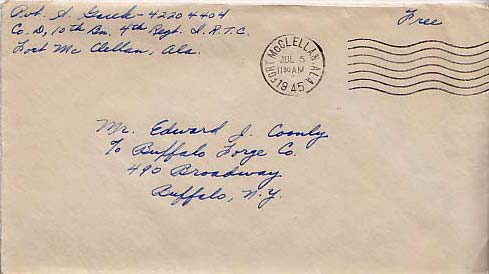 Pvt. A. Gsuk - 42204404
Free
Co. D, 10th Bn. 4th Regt. I.R.T.C.
Fort Mc Clellan, Ala.
FORT McCLELLAN, ALA.
JUL 5
1130 AM
1945
Mr. Edward J. Coonly
c/o Buffalo Forge Co.
490 Broadway
Buffalo, N.Y.